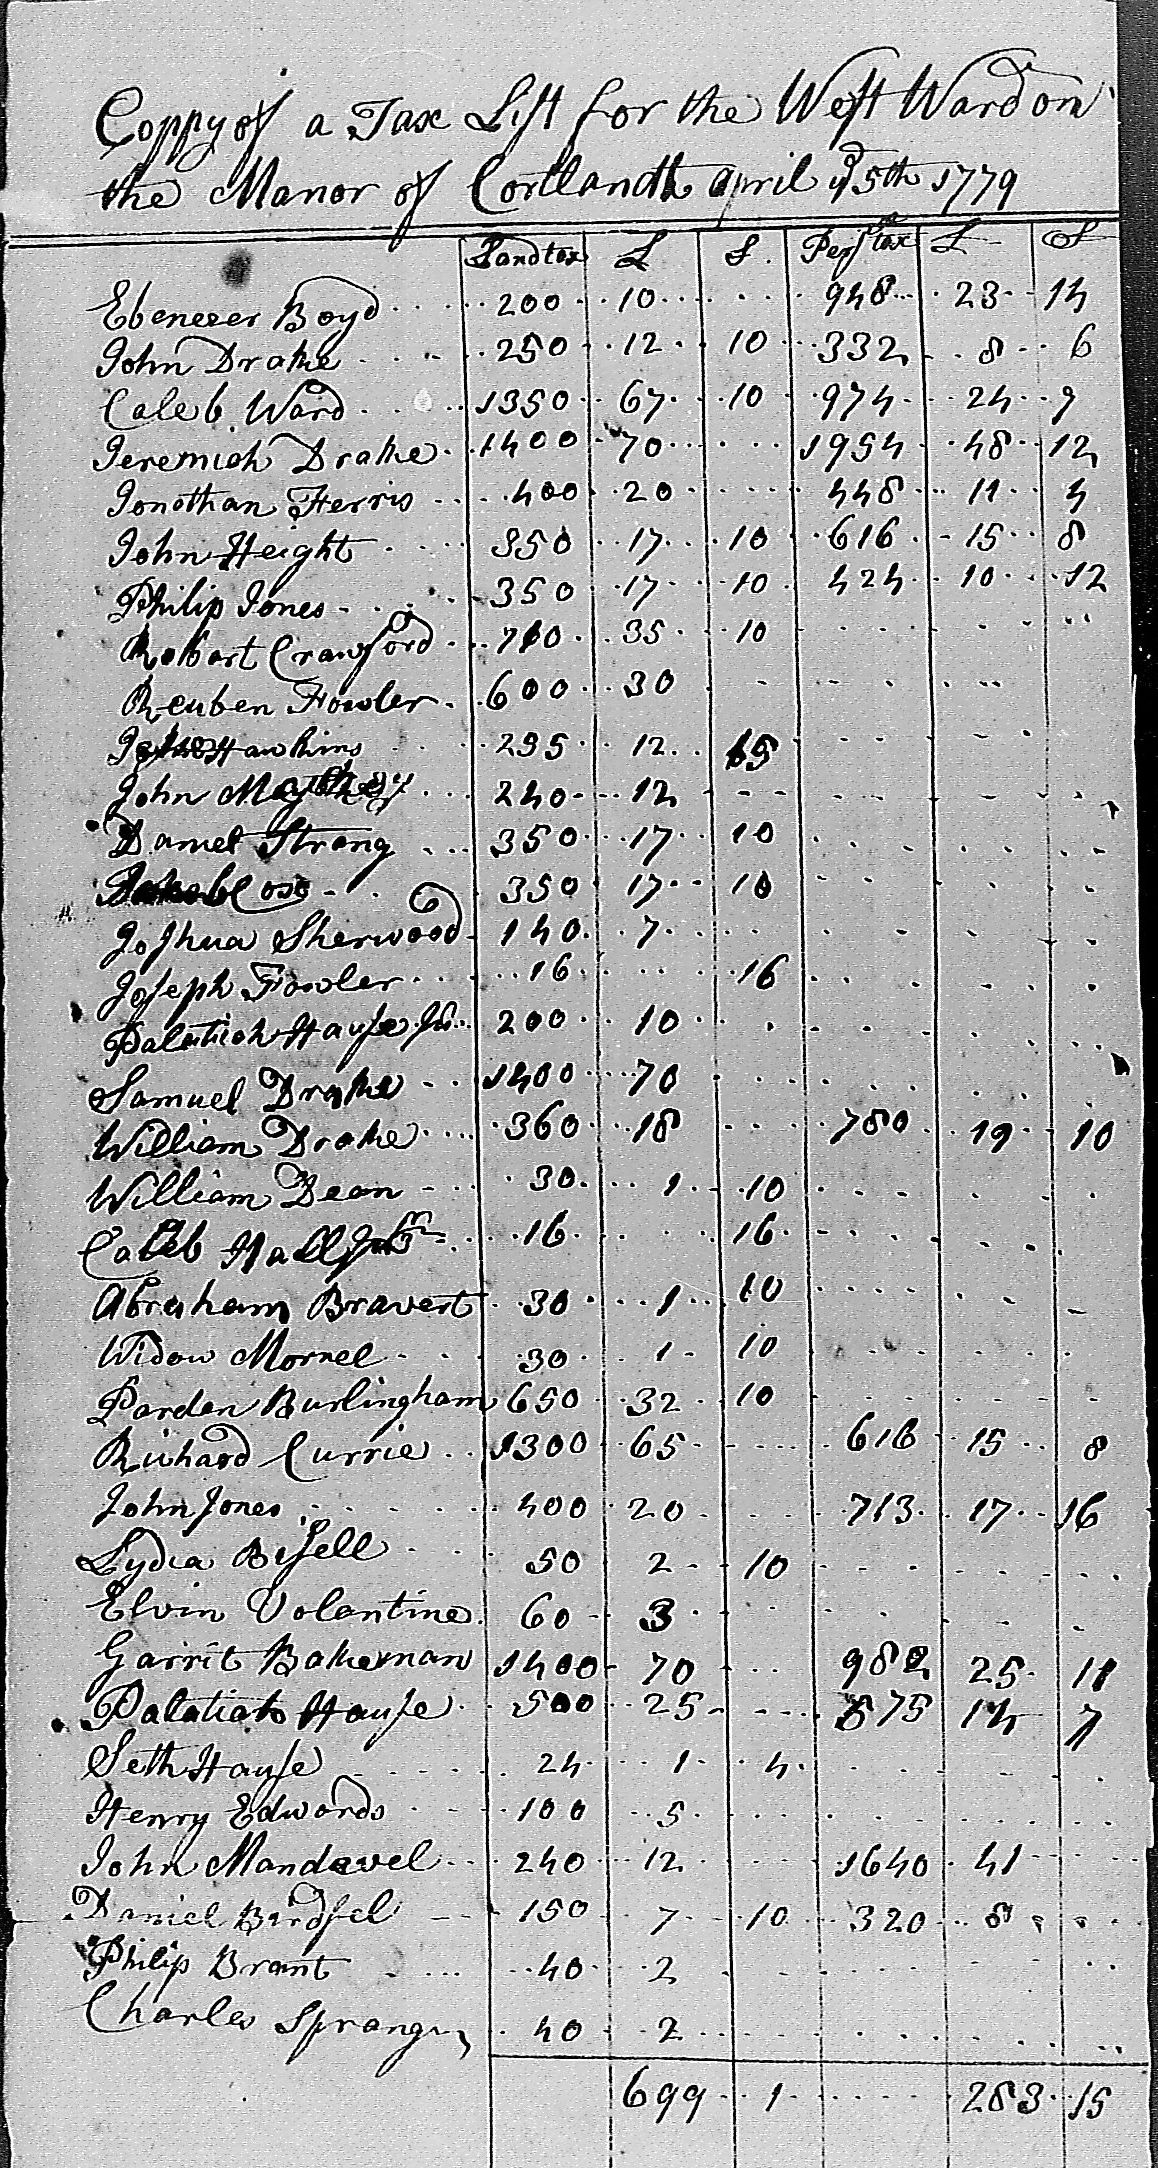 Coppy of a Tax List for the West Ward on
the Manor of Cortlandt april 15th 1779
Land tax £ S Pers tax £ S
Ebenezer Boyd 200 10 948 23 14
John Drake 250 12 10 332 8 6
Caleb Ward 1350 67 10 974 24 7
Jeremiah Drake 1400 70 1954 48 12
Jonathan Ferris 400 20 448 11 4
John Height 350 17 10 616 15 8
Philip Jones 350 17 10 424 10 12
Robart Crawford 710 35 10
Reuben Fowler 600 30
Hawkins 295 12 15
John 240 12
Daniel Strang 350 17 10
350 17 10
Joshua Sherwood 140 7
Joseph Fowler 16 16
Palatiah Hause Ju 200 10
Samuel Drake 1400 70
William Drake 360 18 780 19 10
William Dean 30 1 10
Caleb Hall 16 16
Abraham Bravert 30 1 10
Widow Mornel 30 1 10
Parden Burlingham 650 32 10
Richard Currie 1300 65 616 15 8
John Jones 400 20 713 17 16
Lydia Bisell 50 2 10
Elvin Volantine 60 3
Garrit Bakeman 1400 70 982 25 11
Palatiah Hause 500 25 575 14 7
Seth Hause 24 1 4
Henry Edwards 100 5
John Mandavel 240 12 1640 41
Daniel Birdsel 150 7 10 320 8
Philip Brant 40 2
Charles Sprangr 40 2
699 1 283 15